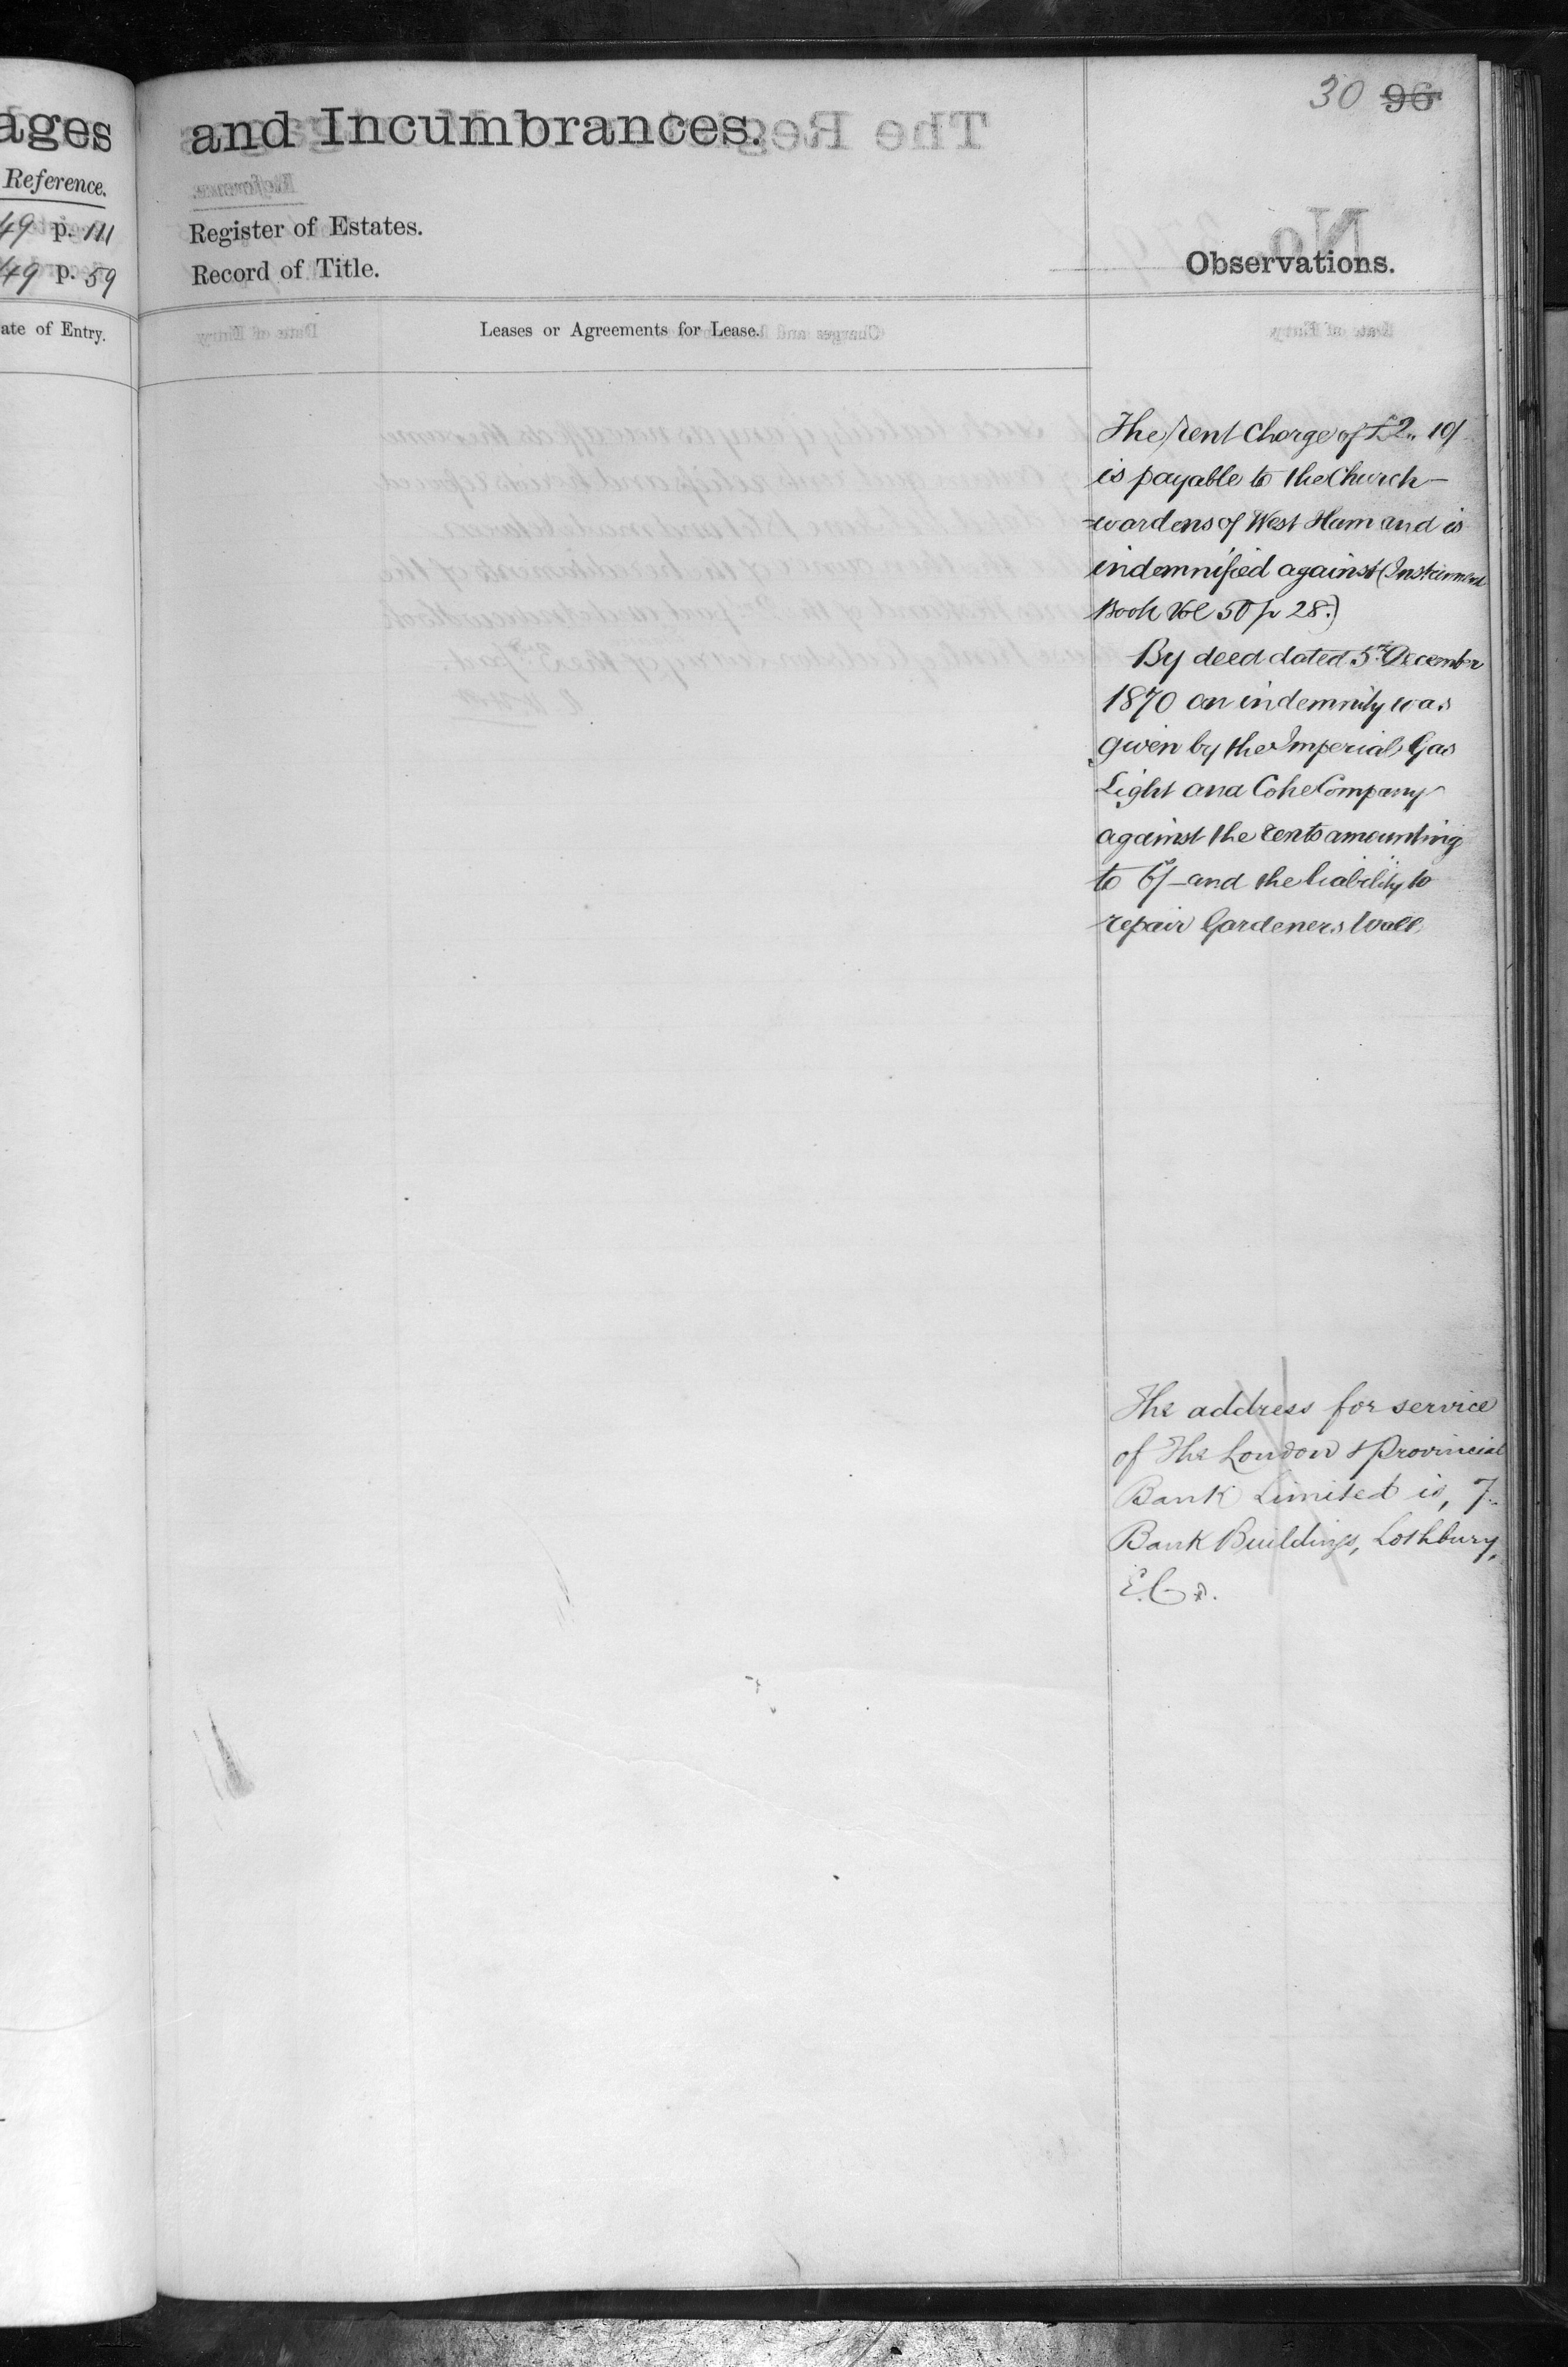 ages
Reference.
49 p. 111
49 p. 59
ate of Entry.
30 96
and Incumbrances.
Register of Estates.
Record of Title.
Observations.
Leases or Agreements for Lease.
The rent Charge of £2.. 10/
is payable to the Church-
-wardens of West Ham and is
indemnified against (Instrument
Book Vol 50 p 28.)
By deed dated 5th December
1870 an indemnity was
given by the Imperial Gas
Light and Coke Company
against the rents amounting
to 6/- and the liability to
repair Gardeners Wall
The address for service
of The London & Provincial
Bank Limited is, 7
Bank Buildings, Lothbury,
E.C.